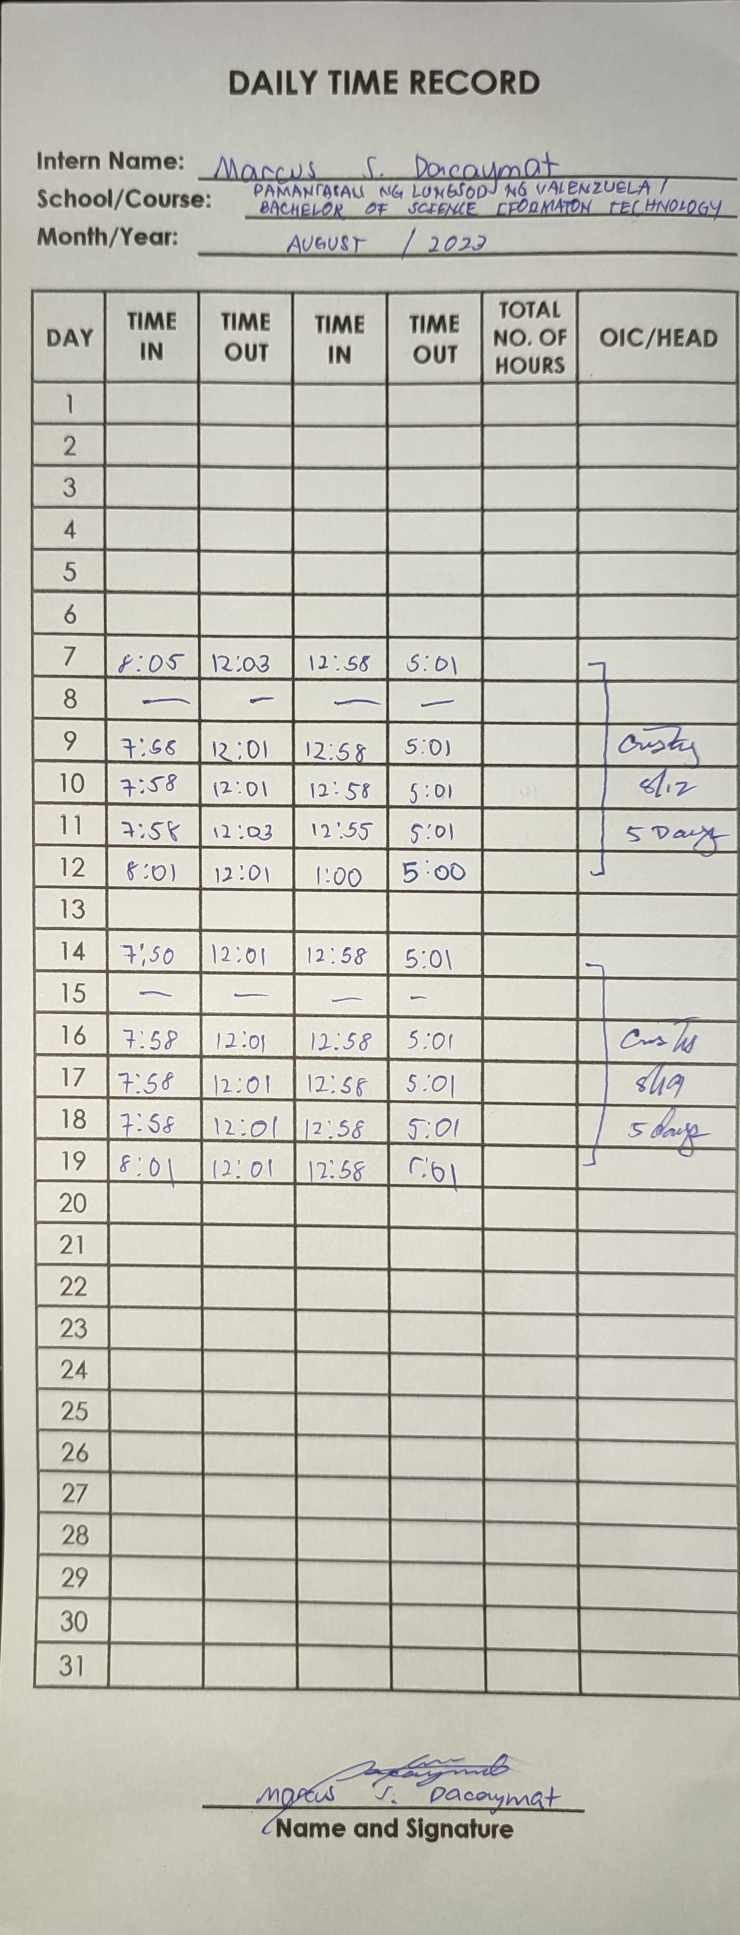 DAILY TIME RECORD
Intern Name: Marcus S. Dacaymat
School/Course: PAMANTASAN NG LUNGSOD NG VALENZUELA /
BACHELOR OF SCIENCE CFORMATON TECHNOLOGY
Month/Year: AUGUST / 2023
DAY TIME IN TIME OUT TIME IN TIME OUT TOTAL NO. OF HOURS OIC/HEAD
1
2
3
4
5
6
7 8:05 12:03 12:58 5:01
8 — — — —
9 7:58 12:01 12:58 5:01
10 7:58 12:01 12:58 5:01 8/12
11 7:58 12:03 12:55 5:01 5 Days
12 8:01 12:01 1:00 5:00
13
14 7:50 12:01 12:58 5:01
15 — — — —
16 7:58 12:01 12:58 5:01
17 7:58 12:01 12:58 5:01 8/19
18 7:58 12:01 12:58 5:01 5 days
19 8:01 12:01 12:58 5:01
20
21
22
23
24
25
26
27
28
29
30
31
Marcus S. Dacaymat
Name and Signature